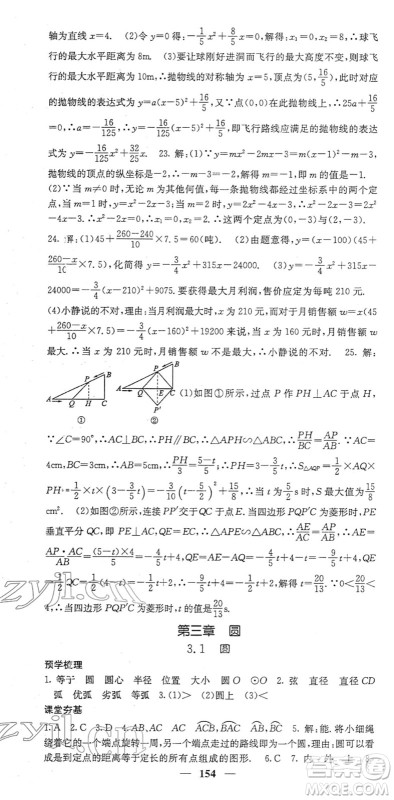 轴为直线x=4. (2)令y=0得: -1/5x²+8/5x=0,解得:x₁=0,x₂=8,∴球飞
行的最大水平距离为8m. (3)要让球刚好进洞而飞行的最大高度不变,则球飞
行的最大水平距离为10m,∴抛物线的对称轴为x=5,顶点为(5,16/5),此时对应
的抛物线的表达式为y=a(x-5)²+16/5,又∵点(0,0)在此抛物线上,∴25a+16/5
=0,∴a=-16/125,∴y=-16/125(x-5)²+16/5,即飞行路线应满足的抛物线的表达
式为y=-16/125x²+32/25x. 23. 解:(1)∵y=mx²-2mx-3=m(x-1)²-m-3,
抛物线的顶点的纵坐标是-2,∴-m-3=-2,解得m=-1,即m的值是-1.
(2)∵当m≠0时,无论m为何值,每一条抛物线都经过坐标系中的两个定
点,当m=1时,y=x²-2x-3;当m=2时,y=2x²-4x-3,∴x²-2x-3
=2x²-4x-3,解得x₁=0,x₂=2,∴这两个定点为(0,-3),(2,-3).
24. 解:(1)45+(260-240)/10×7.5=60(吨). (2)由题意得,y=(x-100)(45
+(260-x)/10×7.5),化简得y=-3/4x²+315x-24000. (3)y=-3/4x²+315x-24000
=-3/4(x-210)²+9075. 要获得最大月利润,售价应定为每吨210元.
(4)小静说的不对,理由:当月利润最大时,x为210元,而月销售额w=x(45
+(260-x)/10×7.5)=-3/4(x-160)²+19200来说,当x为160元时,月销售额w
最大.∴当x为210元时,月销售额w不是最大,∴小静说的不对. 25. 解:
(1)如图①所示,过点P作PH⊥AC于点H,
① ②
∵∠C=90°,∴AC⊥BC,∴PH∥BC,∴△APH∽△ABC,∴PH/BC=AP/AB. ∵AC
=4cm,BC=3cm,∴AB=5cm,∴PH/3=(5-t)/5,∴PH=3-3/5t,∴S△AQP=1/2×AQ×
PH=1/2×t×(3-3/5t)=-3/10(t-5/2)²+15/8,∴当t为5/2秒时,S最大值为15/8
cm². (2)如图②所示,连接PP′,PP′交QC于点E. 当四边形PQP′C为菱形时,PE
垂直平分QC,即PE⊥AC,QE=EC,∴△APE∽△ABC,∴AE/AC=AP/AB,∴AE=
AP·AC/AB=(5-t)×4/5=-4/5t+4,QE=AE-AQ=-4/5t+4-t=-9/5t+4,QE=
1/2QC=1/2(4-t)=-1/2t+2,∴-9/5t+4=-1/2t+2,解得:t=20/13. ∵0<20/13<
4,∴当四边形PQP′C为菱形时,t的值是20/13s.
第三章 圆
3.1 圆
预学梳理
1. 等于 圆 圆心 半径 圆 ⊙O 圆O 2. 弦 直径 直径CD
弧 优弧 劣弧 等弧 3.(1)= (2)圆上 (3)<
课堂夯基
1. A 2. C 3. D 4. AB、AC AB BC AC BAC BCA 5. 解:能,将小细绳
绕着它的一个端点旋转一周,另一个端点走过的路线即为一个圆.圆可以看
成是到定点的距离等于定长的所有点组成的图形. 6. C 7. 内 外 上 8.
154
zyjl.cn
zyjl.cn